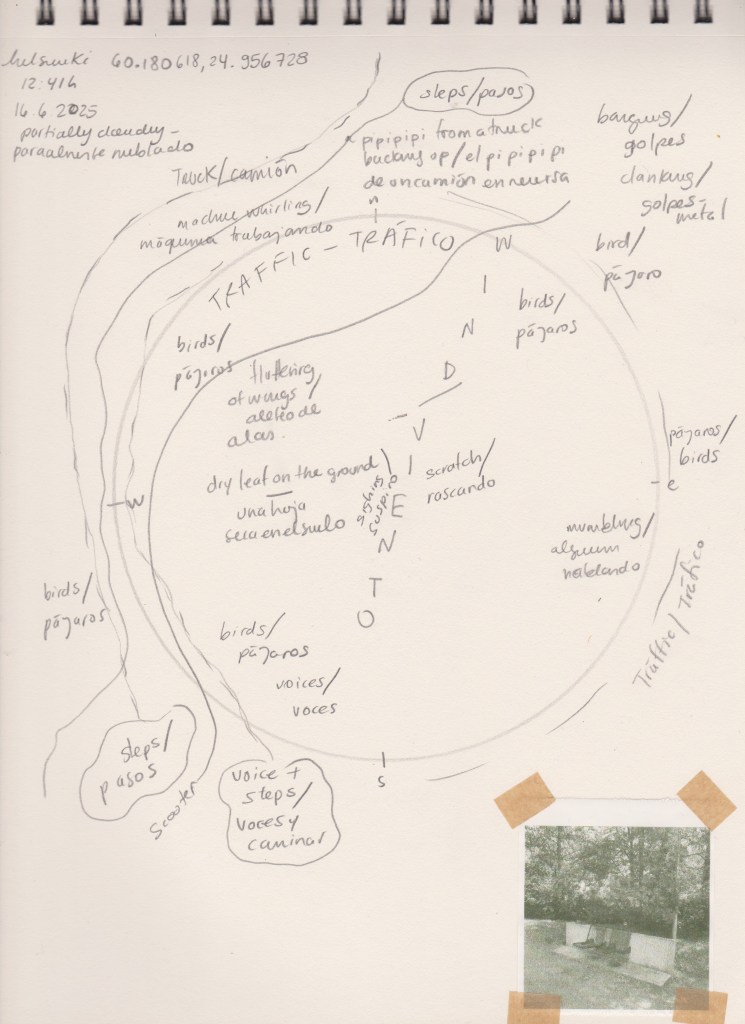 helsinki 60.180618, 24.956728
12:41h
16.6.2025
partially cloudy -
parcialmente nublado
steps/pasos
pipipipi from a truck
backing up/el pi pi pi pi
de un camión en reversa
banging/
golpes
clanking/
golpes
metal
TRUCK/camión
machine whirling/
máquina trabajando
n
TRAFFIC - TRÁFICO
bird/
pájaro
birds/
pájaros
WIND
VIENTO
birds/
pájaros
fluttering
of wings/
aleteo de
alas.
pájaros/
birds
dry leaf on the ground
una hoja
seca en el suelo
sighing
suspiro
scratch/
rascando
w
e
mumbling/
alguien
hablando
Tráffic/Tráfico
birds/
pájaros
birds/
pájaros
voices/
voces
s
steps/
pasos
scooter
voice +
steps/
voces y
caminar